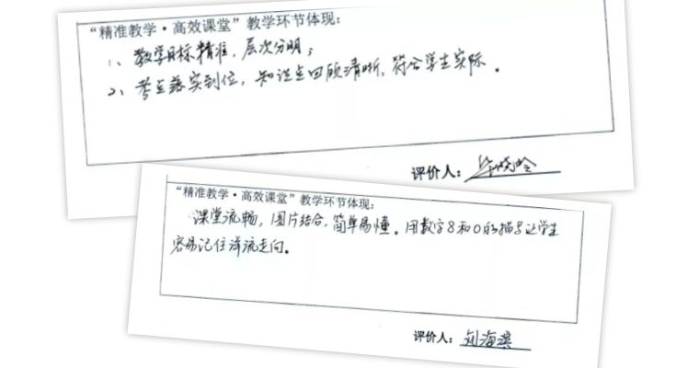 “精准教学·高效课堂”教学环节体现：
1、教学目标精准，层次分明；
2、考点落实到位，知识点回顾清晰，符合学生实际。
评价人：
“精准教学·高效课堂”教学环节体现：
课堂流畅，图片结合，简单易懂。用数字8和0的描写让学生
容易记住洋流走向。
评价人：刘海滨